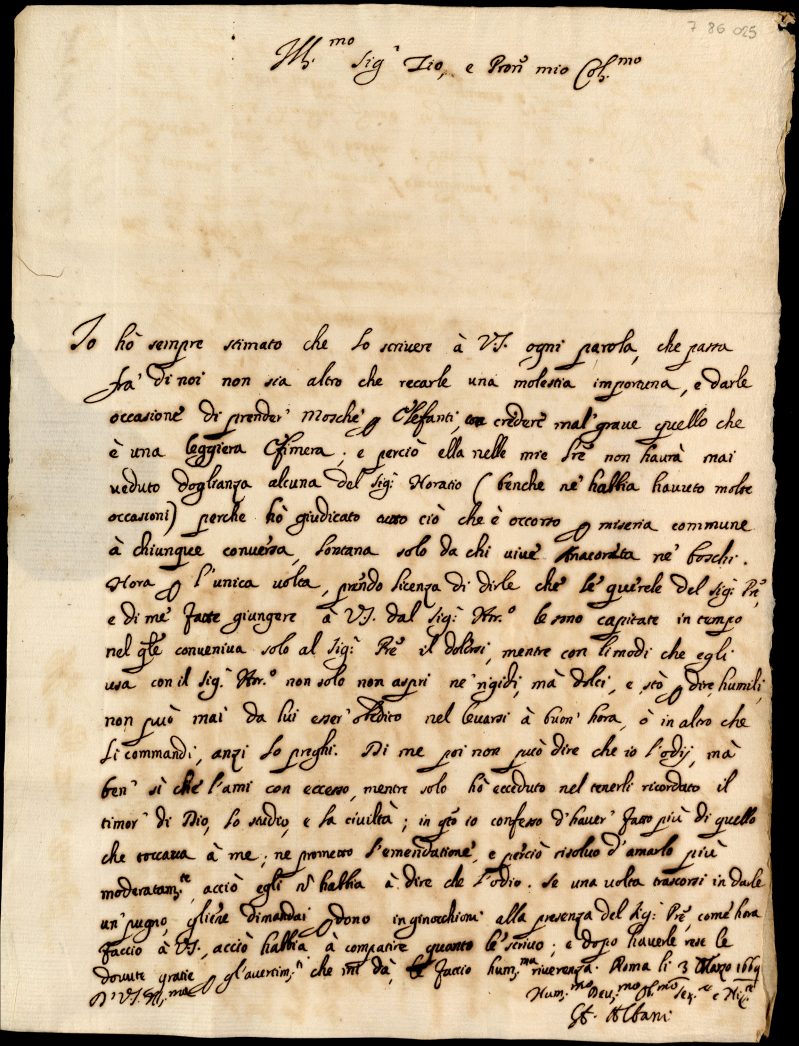 7 86 025
Ill.mo Sig.r Zio, e Pron mio Col.mo
Io hò sempre stimato che lo scrivere à V.S. ogni parola, che passa
frà di noi non sia altro che recarle una molestia importuna, e darle
occasione di prender' Mosche p Elefanti, credere mal' grave quello che
è una leggiera Efimera; e perciò ella nelle mie lre non haurà mai
veduto doglianza alcuna del Sig.r Horatio (benche nè habbia hauuto molte
occasioni) perche hò giudicato ciò che è occorso p miseria commune
à chiunque conversa, lontana solo da chi vive Anacoreta nè boschi.
Hora p l'unica volta, prendo licenza di dirle che le querele del Sig.r Pre,
e di me fatte giungere à V.S. dal Sig.r Hor.o le sono capitate in tempo
nel qle conveniva solo al Sig.r Pre il dolersi, mentre con li modi che egli
usa con il Sig.r Hor.o non solo non aspri nè rigidi, mà dolci, e stò p dire humili,
non può mai da lui esser' obedito nel levarsi à buon' hora, ò in altro che
li commandi, anzi lo preghi. Di me poi non può dire che io l'odij, mà
ben' sì che l'ami con eccesso, mentre solo hò ecceduto nel tenerli ricordato il
timor' di Dio, lo studio, e la civiltà; in qto io confesso d'haver' fatto più di quello
che toccava à me; ne prometto l'emendatione, e perciò risoluo d'amarlo più
moderatam.te, acciò egli n habbia à dire che l'odio. Se una volta trascorsi in darle
un' pugno, gliene dimandai pdono inginocchioni alla presenza del Sig.r Pre, come hora
faccio à V.S., acciò habbia à compatire quanto le scrivo; e dopo haverle rese le
dovute gratie p gl'avertim.ti che mi dà, le faccio hum.ma riverenza. Roma li 3 Marzo 1669
D' V.S. Ill.ma
Hum.mo Dev.mo Obl.mo Ser.re e Nip.te
G. Albani